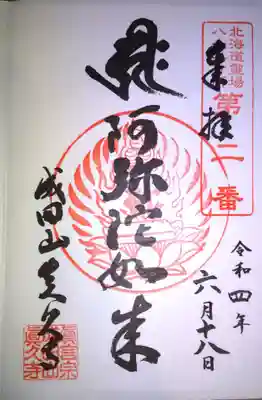 北海道
八
霊場
第二番
奉拝
令和四年
六月十八日
阿弥陀如来
成田山真久寺
真言宗
真久寺